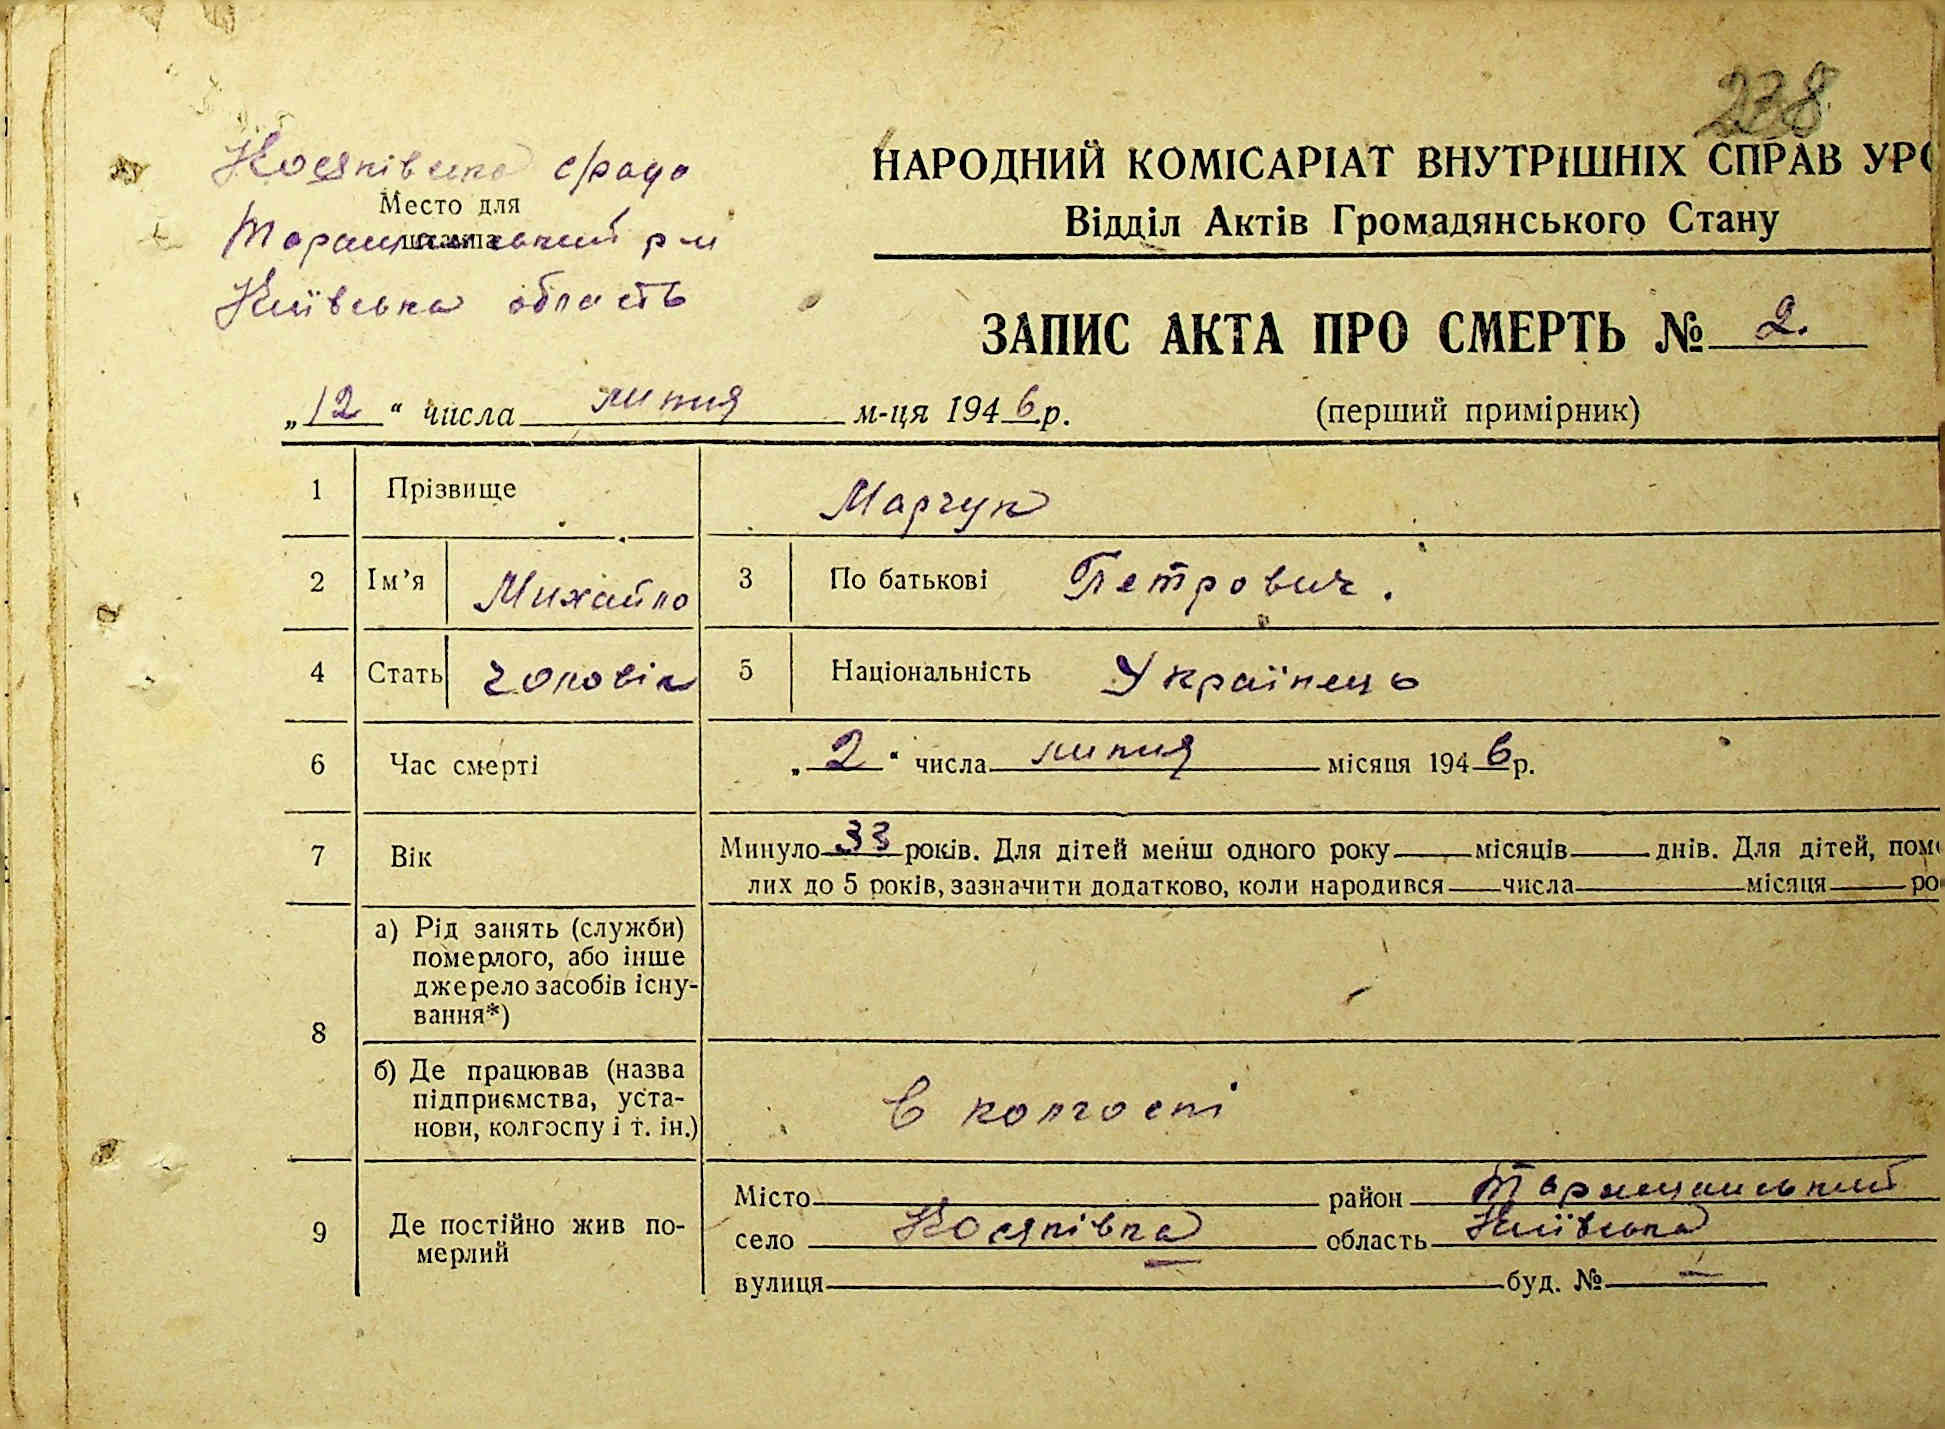 238
Косяківська с/рада
Место для
штампа
Таращанський р-н
Київська область
НАРОДНИЙ КОМІСАРІАТ ВНУТРІШНІХ СПРАВ УРС
Відділ Актів Громадянського Стану
ЗАПИС АКТА ПРО СМЕРТЬ № 2.
„12“ числа липня м-ця 1946 р.
(перший примірник)
1 Прізвище Марчук
2 Ім’я Михайло 3 По батькові Петрович.
4 Стать чоловік 5 Національність Українець
6 Час смерті „2“ числа липня місяця 1946 р.
7 Вік Минуло 33 років. Для дітей менш одного року місяців днів. Для дітей, пом
лих до 5 років, зазначити додатково, коли народився числа місяця ро
8 а) Рід занять (служби)
померлого, або інше
джерело засобів існу-
вання*)
б) Де працював (назва
підприємства, уста-
нови, колгоспу і т. ін.)
в колгоспі
9 Де постійно жив по-
мерлий
Місто район Таращанський
село Косяківка область Київська
вулиця буд. № —